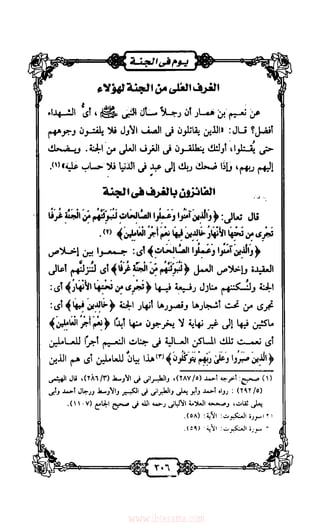 يوم فى الجنة
الغرف العُلى من الجنة لهؤلاء
عن نعيم بن همار أن رجلاً سأل النبى ﷺ، أىُّ الشهداء
أفضل؟ قال: «الذين يقاتلون فى الصف الأول فلا يلفتون وجوههم
حتى يُقتلوا، أولئك ينطلقون فى الغرف العلى من الجنة. ويضحك
إليهم ربهم، وإذا ضحك ربك إلى عبد فى الدنيا فلا حساب عليه»(١).
الفائزون بالغرف فى الجنة
قال تعالى: ﴿وَالَّذِينَ آمَنُوا وَعَمِلُوا الصَّالِحَاتِ لَنُبَوِّئَنَّهُم مِّنَ الْجَنَّةِ غُرَفًا
تَجْرِي مِن تَحْتِهَا الأَنْهَارُ خَالِدِينَ فِيهَا نِعْمَ أَجْرُ الْعَامِلِينَ﴾(٢).
﴿وَالَّذِينَ آمَنُوا وَعَمِلُوا الصَّالِحَاتِ﴾ أى: جمعوا بين إخلاص
العقيدة وإخلاص العمل ﴿لَنُبَوِّئَنَّهُم مِّنَ الْجَنَّةِ غُرَفًا﴾ أى لننزلنهم أعالى
الجنة ولنسكننهم منازل رفيعة فيها ﴿تَجْرِي مِن تَحْتِهَا الأَنْهَارُ﴾ أى:
تجرى من تحت أشجارها وقصورها أنهار الجنة ﴿خَالِدِينَ فِيهَا﴾ أى:
ماكثين فيها إلى غير نهاية لا يخرجون منها أبدًا ﴿نِعْمَ أَجْرُ الْعَامِلِينَ﴾
أى نعمت تلك المساكن العالية فى جنات النعيم أجرًا للعاملين
﴿الَّذِينَ صَبَرُوا وَعَلَىٰ رَبِّهِمْ يَتَوَكَّلُونَ﴾(٣) هذا بيانٌ للعاملين أى هم الذين
(١) صحيح: أخرجه أحمد (٢٨٧/٥)، والطبرانى فى الأوسط (٢٨٦/٣)، قال الهيثمى
(٢٩٢/٥) : رواه أحمد وأبو يعلى والطبرانى فى الكبير والأوسط ورجال أحمد وأبى
يعلى ثقات، وصححه العلامة الألبانى رحمه الله فى صحيح الجامع (١١٠٧).
سورة العنكبوت: الآية: (٥٨).
سورة العنكبوت: الآية: (٥٩).
٣٠٦
www.ibtesama.com